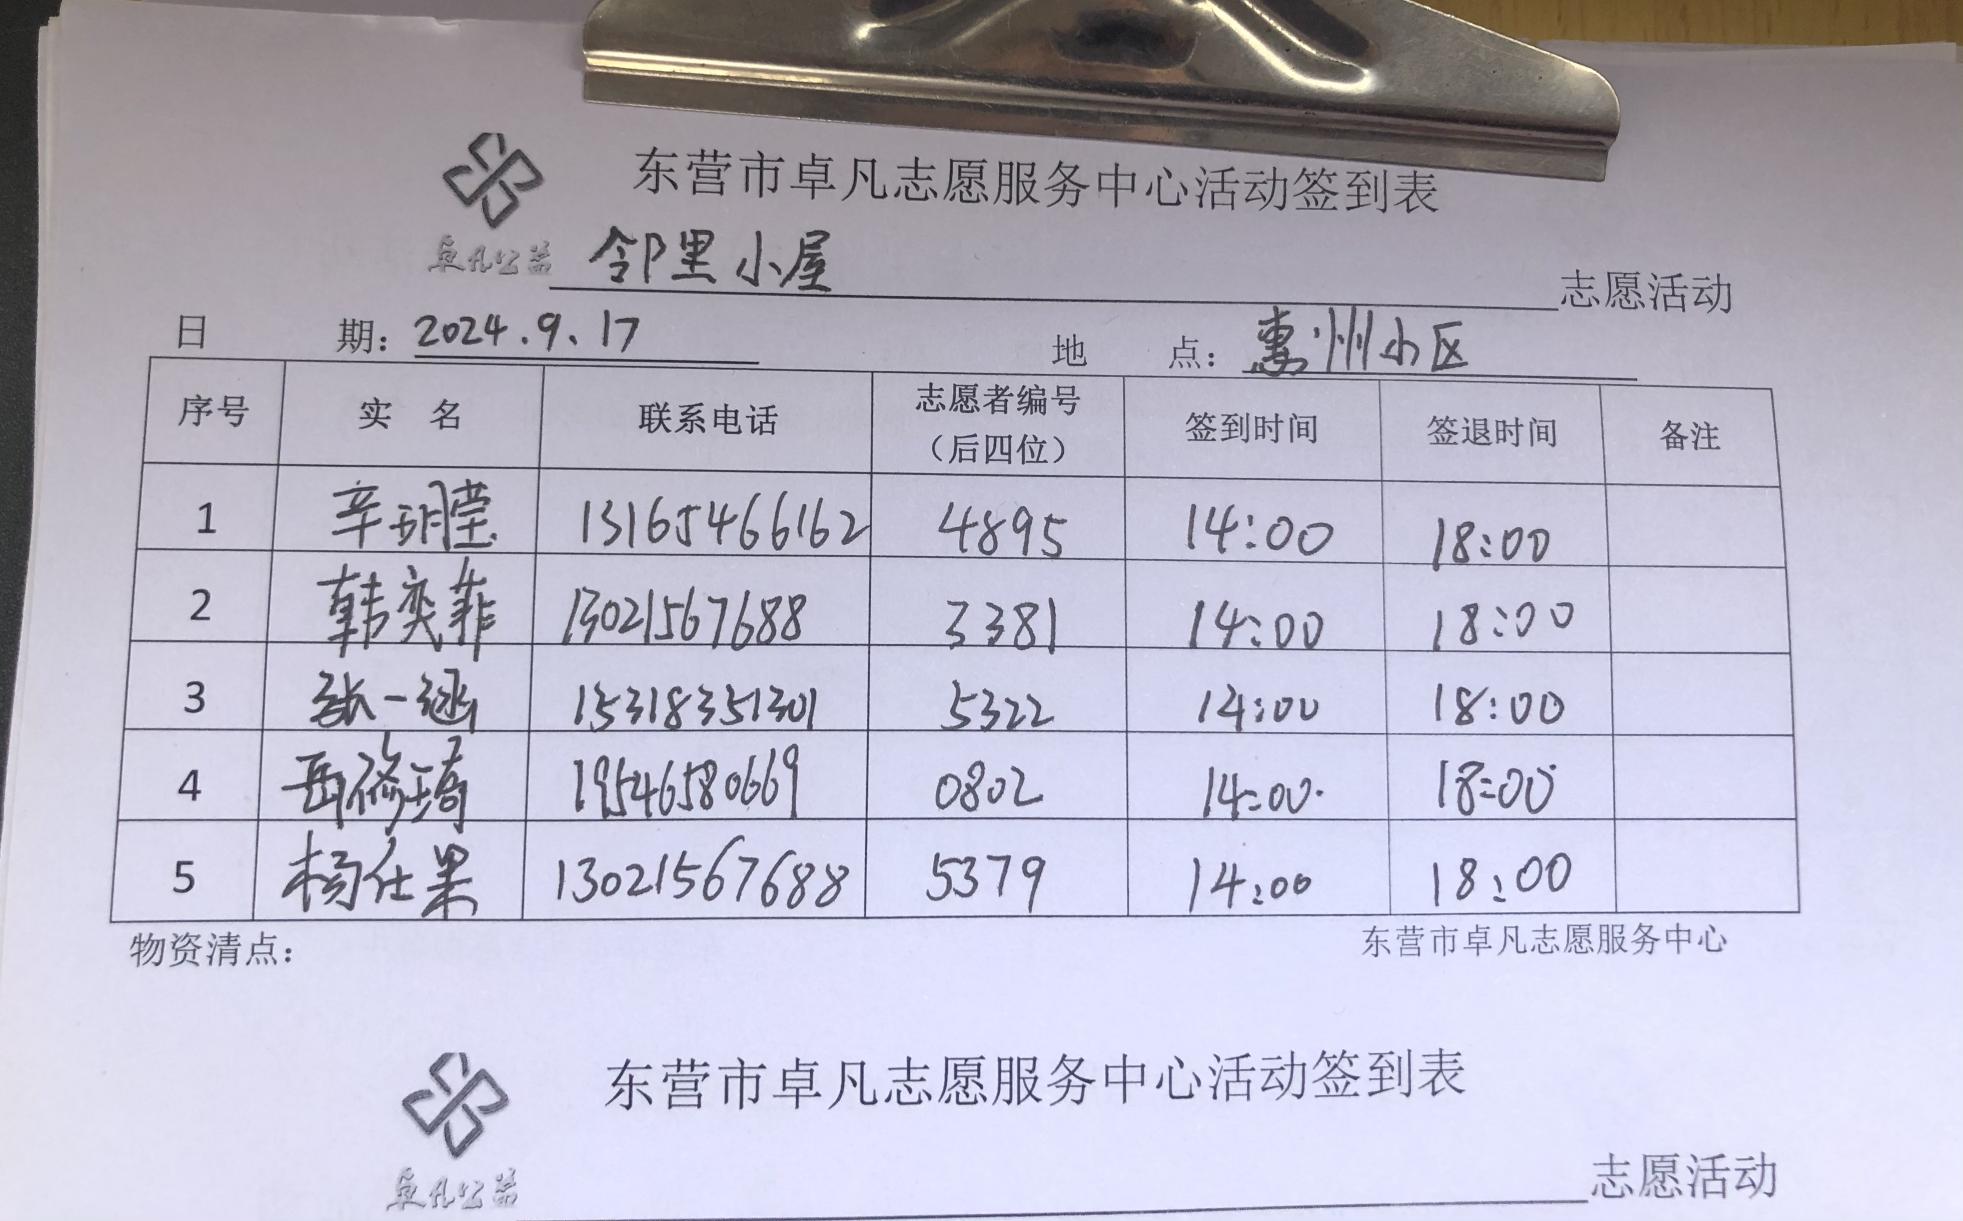 东营市卓凡志愿服务中心活动签到表
卓凡公益 邻里小屋 志愿活动
日 期：2024.9.17 地 点：惠州小区
序号 实 名 联系电话 志愿者编号（后四位） 签到时间 签退时间 备注
1 辛玥莹 13165466162 4895 14:00 18:00
2 韩奕菲 13021567688 3381 14:00 18:00
3 张一涵 15318351301 5322 14:00 18:00
4 岳修琦 19546580669 0802 14:00 18:00
5 杨仕果 13021567688 5379 14:00 18:00
物资清点： 东营市卓凡志愿服务中心
东营市卓凡志愿服务中心活动签到表
卓凡公益 志愿活动